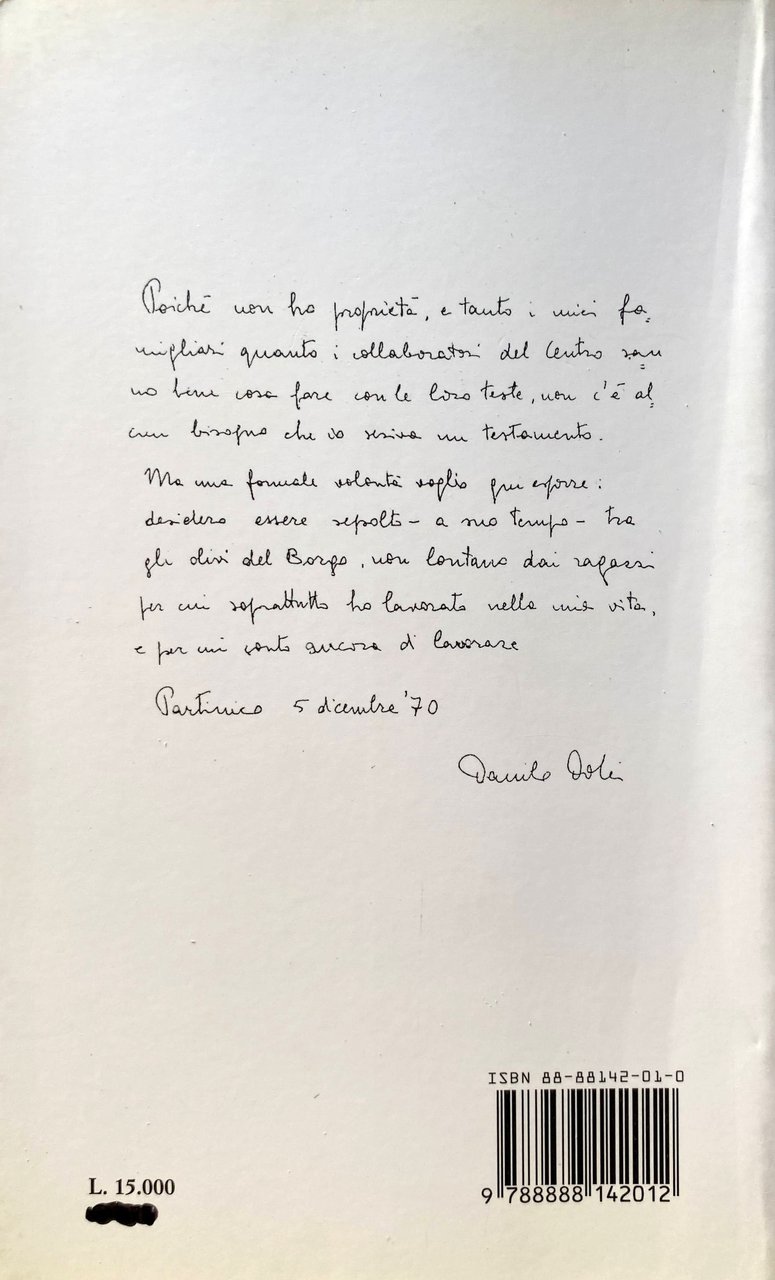 Poiché non ho proprietà, e tanto i miei fa=
migliari quanto i collaboratori del Centro san=
no bene cosa fare con le loro teste, non c'è al=
cun bisogno che io scriva un testamento.
Ma una formale volontà voglio qui esporre:
desidero essere sepolto - a suo tempo - tra
gli ulivi del Borgo, non lontano dai ragazzi
per cui soprattutto ho lavorato nella mia vita,
e per cui conto ancora di lavorare
Partinico 5 dicembre '70
Danilo Dolci
ISBN 88-88142-01-0
9 788888 142012
L. 15.000